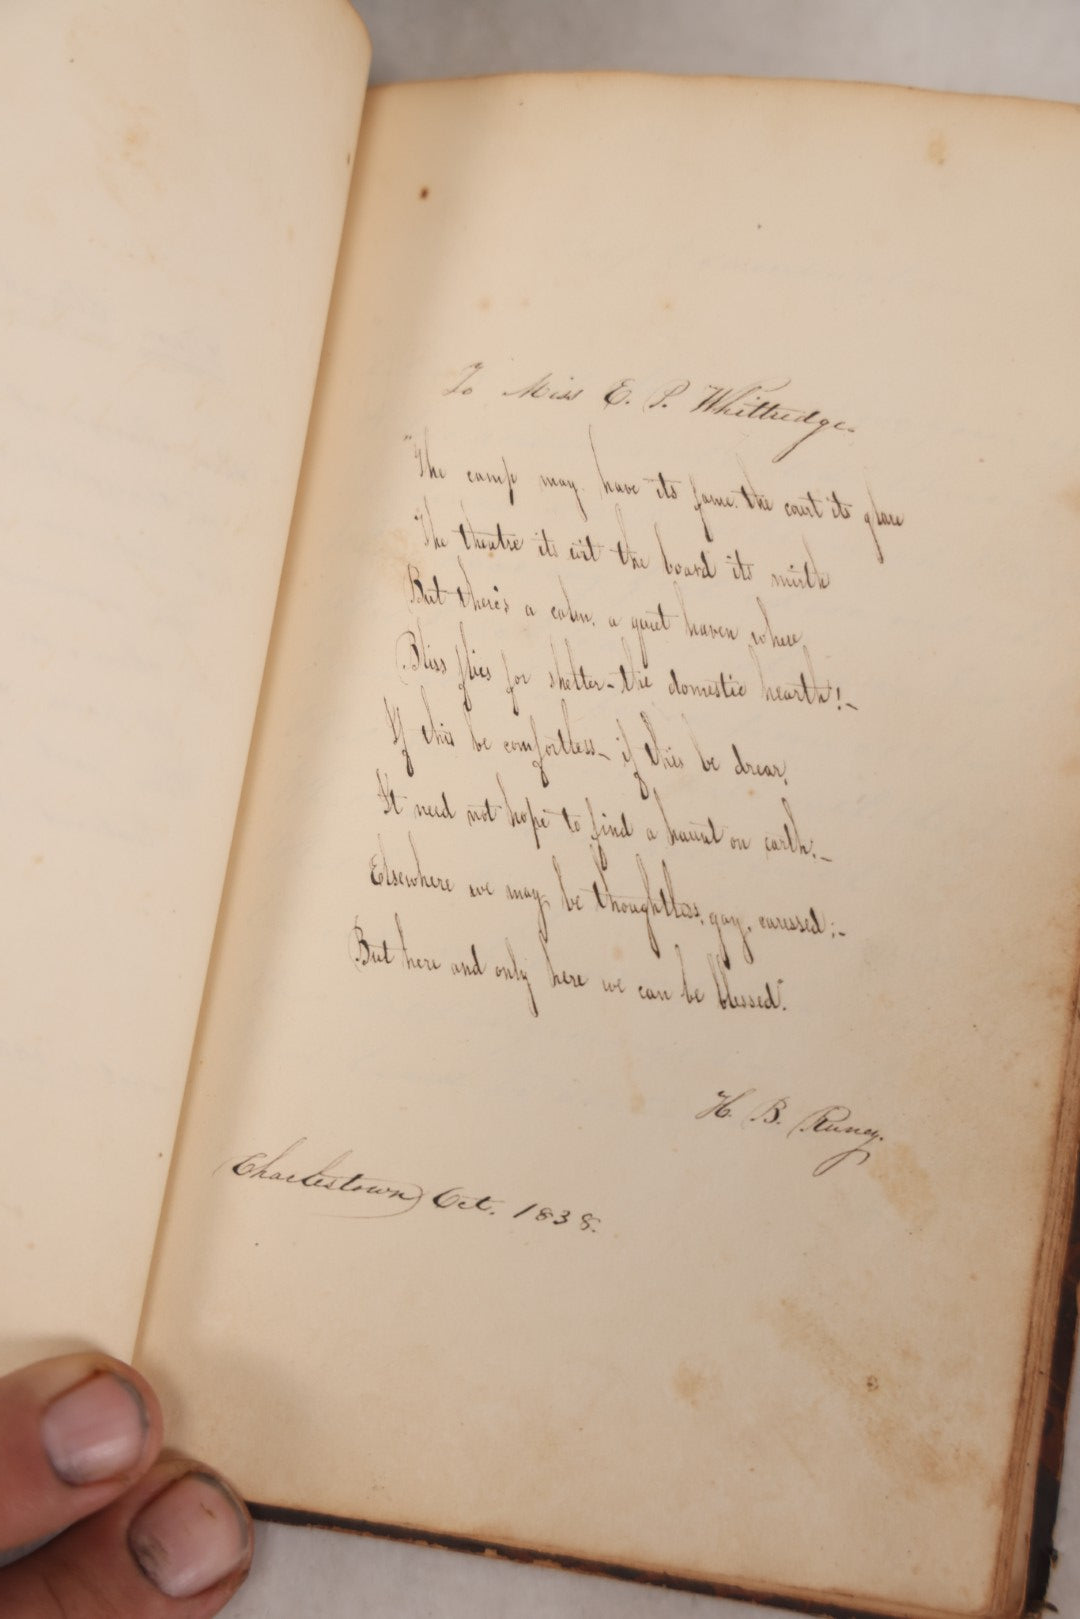 To Miss E. P. Whittredge.
"The camp may have its fame. the court its glare
The theatre its wit the board its mirth
But there's a calm. a quiet haven where
Bliss flies for shelter - the domestic hearth! -
If this be comfortless - if this be drear,
It need not hope to find a haunt on earth: -
Elsewhere we may be thoughtless, gay, caressed; -
But here and only here we can be blessed."
H. B. Runey.
Charlestown Oct. 1838.